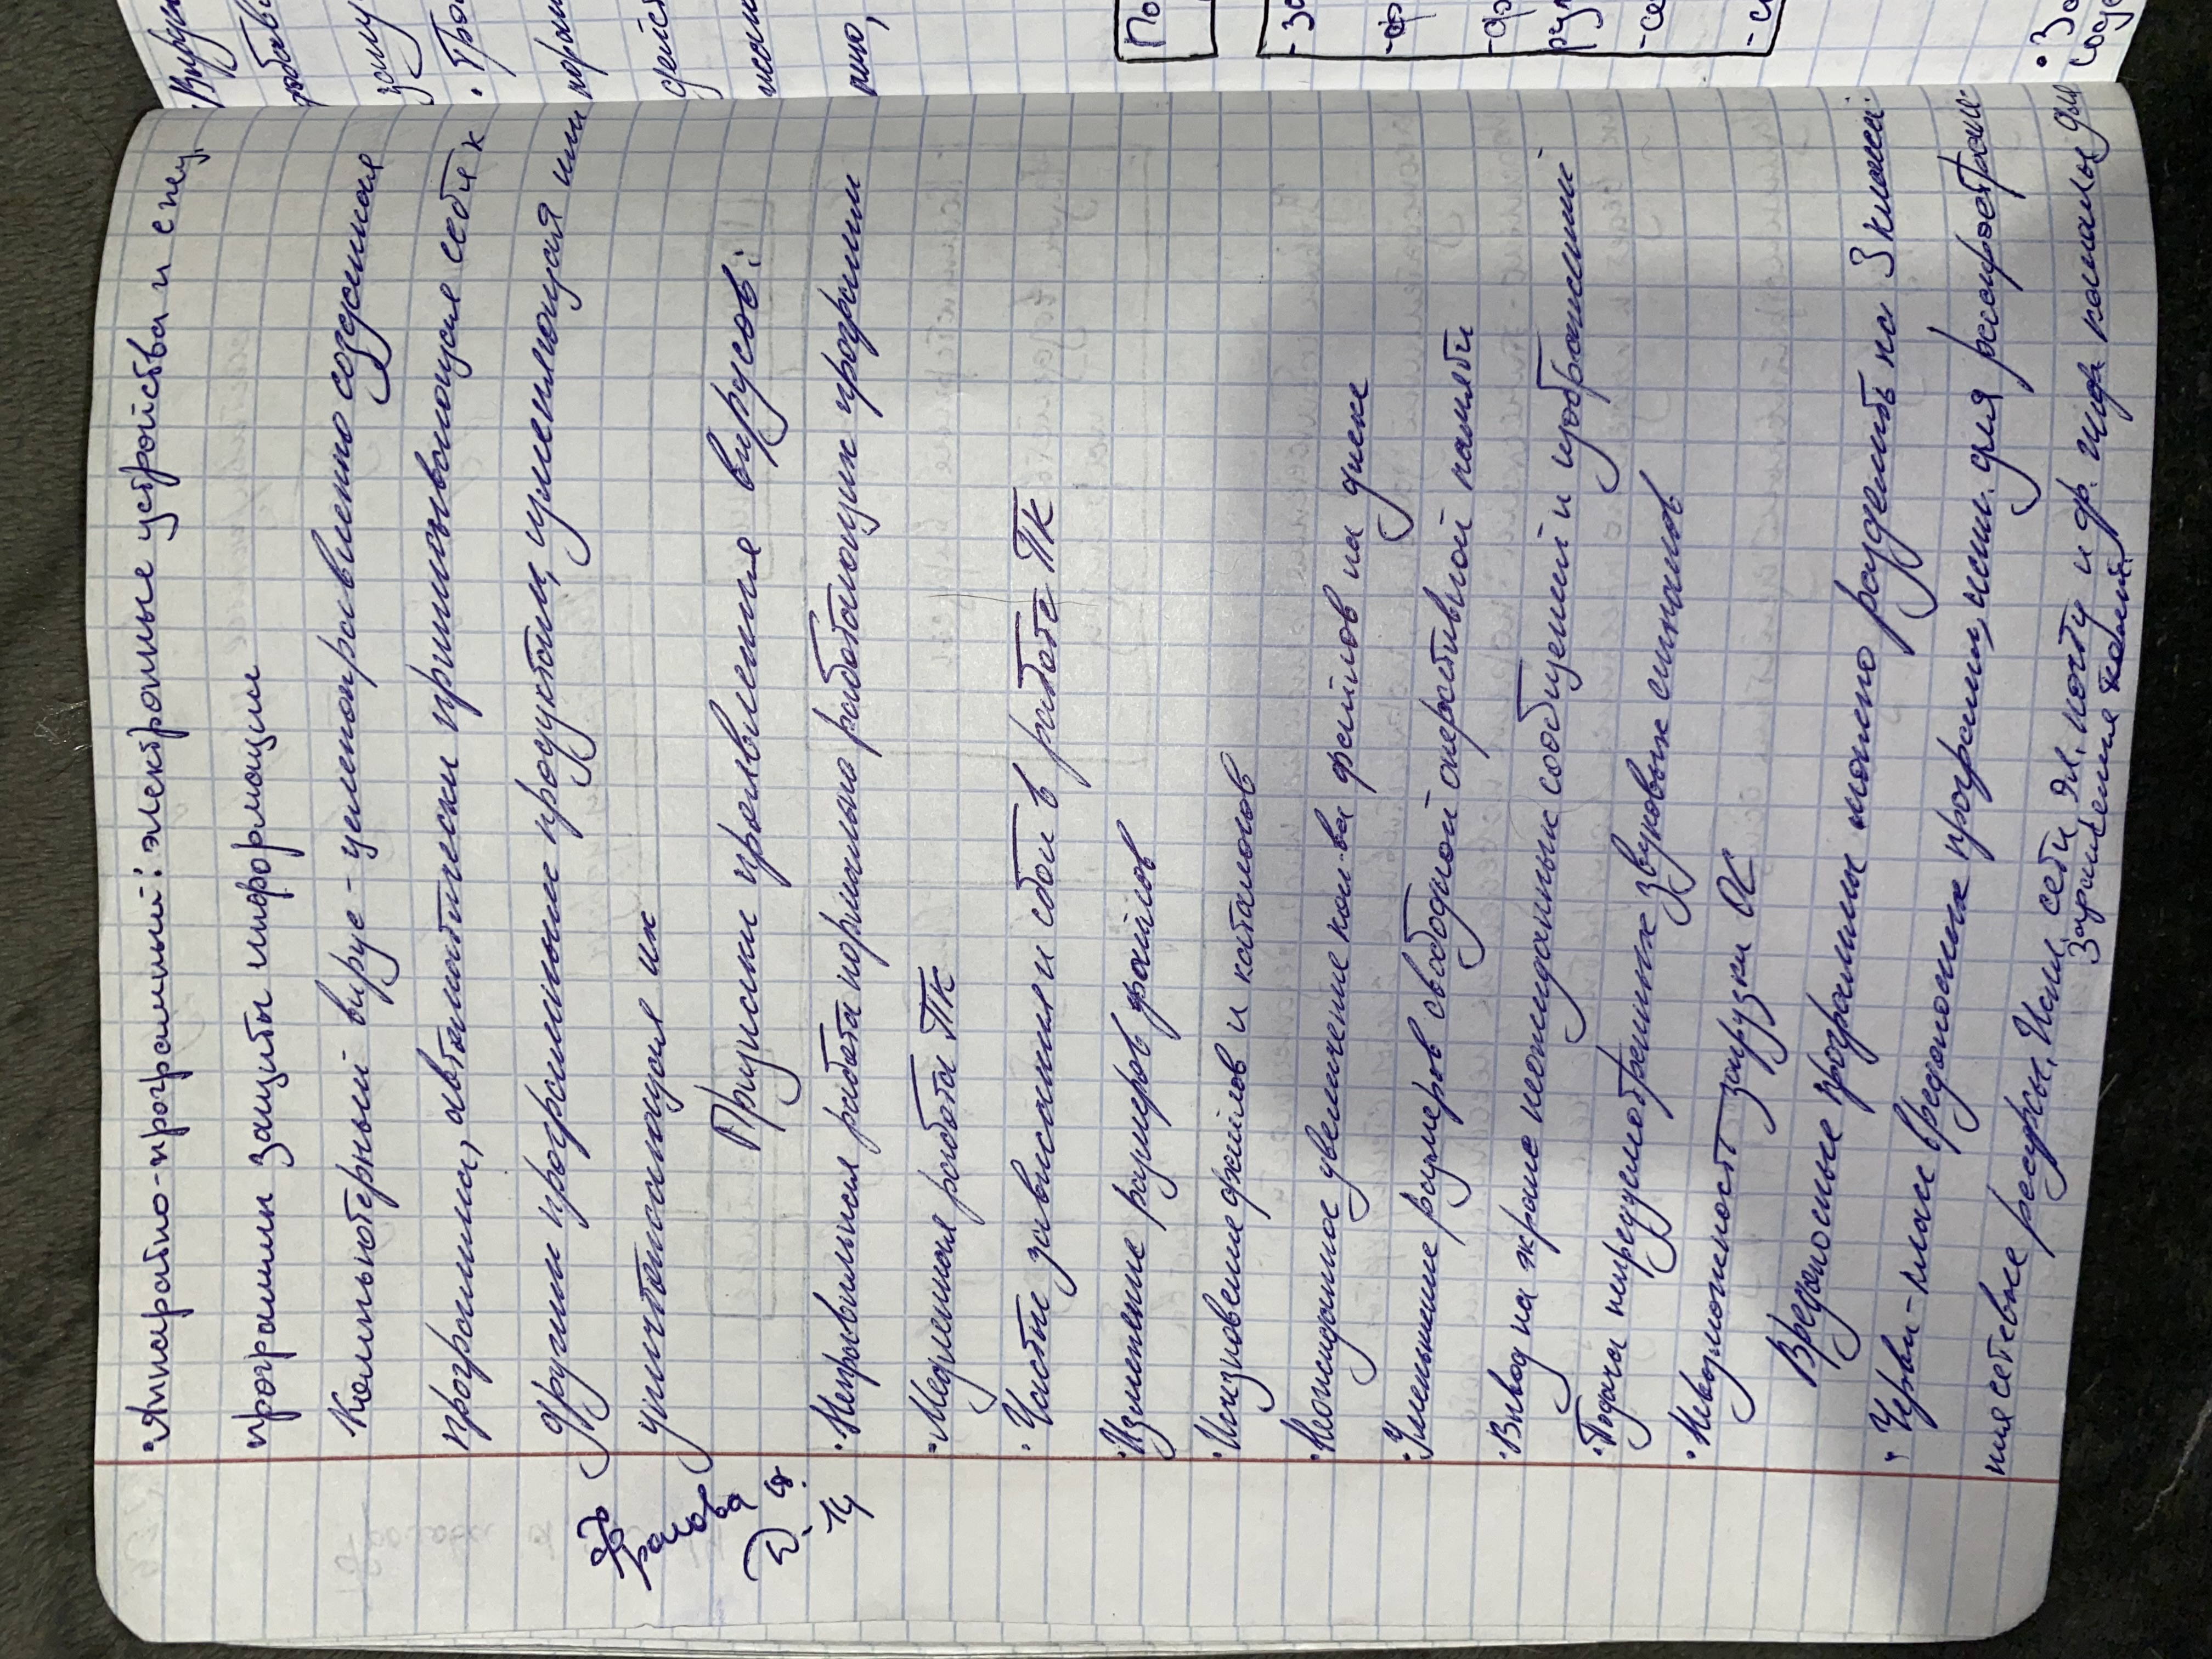 • Аппаратно-програмный: электронные устройства и спец.
программы защиты информации
Компьютерный вирус - целенаправленно созданная
программа, автоматически приписывающая себя к
другим програмным продуктам, изменяющая или
уничтожающая их
Признаки проявления вирусов:
• Неправильная работа нормально работающих программ
• Медленная работа ПК
• Частые зависания и сбои в работе ПК
• Изменение размеров файлов
• Исчезновение файлов и каталогов
• Неожиданное увеличение кол-ва файлов на диске
• Уменьшение размеров свободной оперативной памяти
• Вывод на экране неожиданных сообщений и изображений
• Подача непредусмотренных звуковых сигналов
• Невозможность загрузки ОС
Вредоносные программы можно разделить на 3 класса:
• Черви - класс вредоносных программ, исп. для распростране-
ния сетевые ресурсы. Исп. сети, эл. почту и др. инф. каналы для
заражения
Д.
14
Виру
добав
запу
По